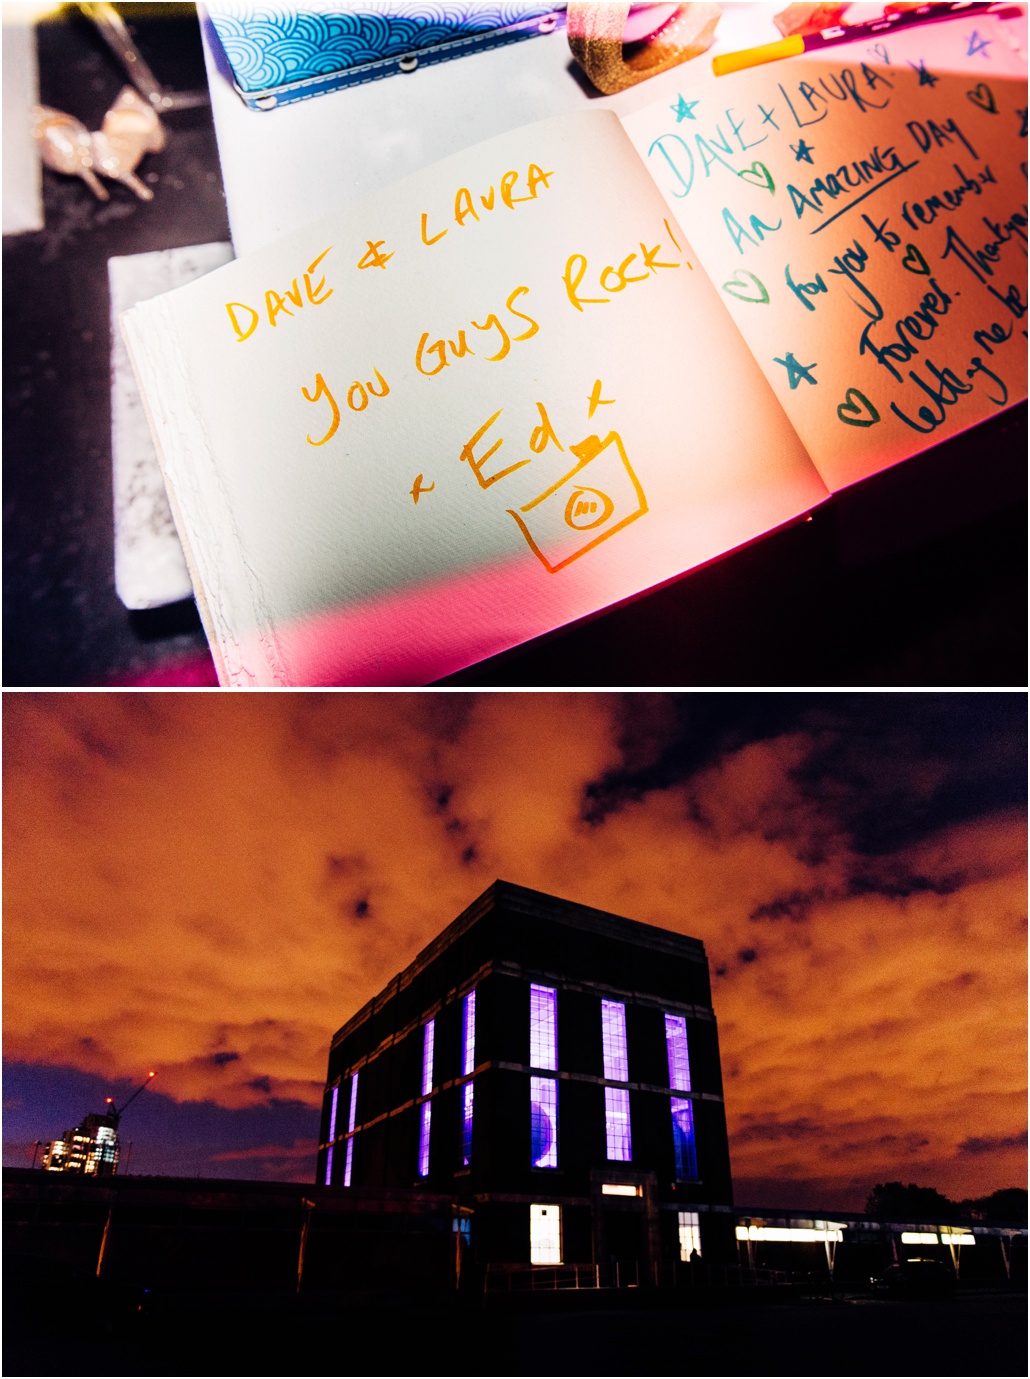 DAVE & LAURA
YOU GUYS ROCK!
x Ed x
DAVE + LAURA
AN AMAZING DAY
For you to remember
Forever. Thankyou
letting me be